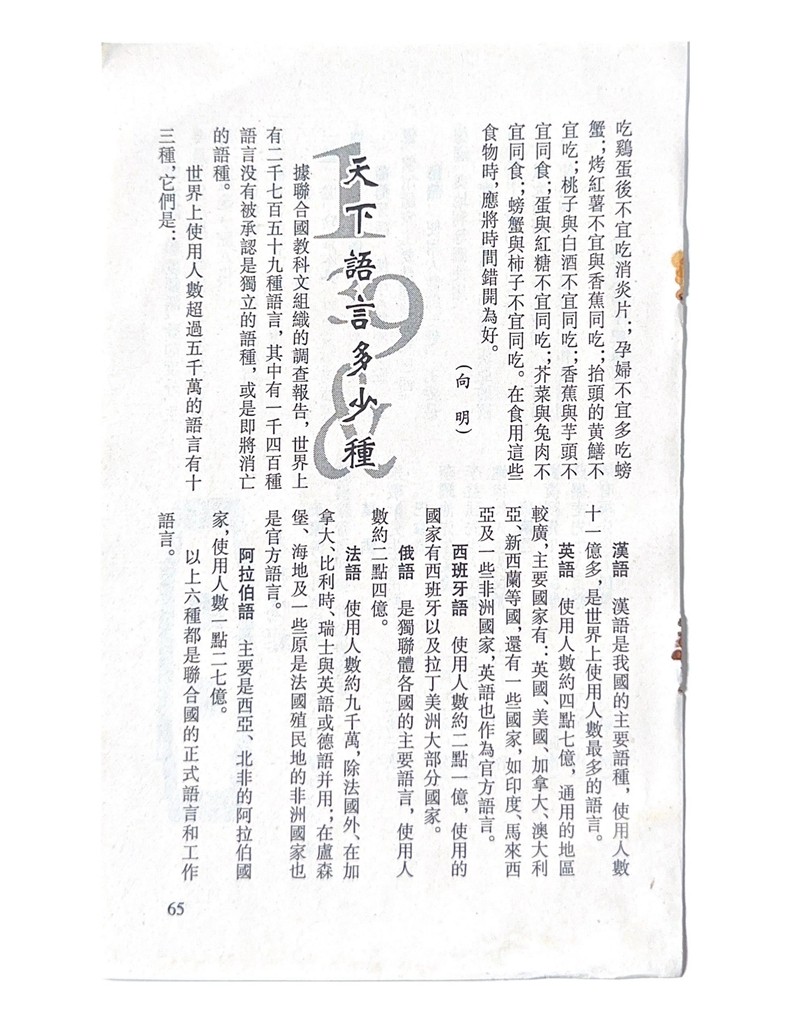 吃鷄蛋後不宜吃消炎片；孕婦不宜多吃螃
蟹；烤紅薯不宜與香蕉同吃；抬頭的黄鱔不
宜吃；桃子與白酒不宜同吃；香蕉與芋頭不
宜同食；蛋與紅糖不宜同吃；芥菜與兔肉不
宜同食；螃蟹與柿子不宜同吃。在食用這些
食物時，應將時間錯開為好。
（向　明）
139&
天下語言多少種
據聯合國教科文組織的調查報告，世界上
有二千七百五十九種語言，其中有一千四百種
語言没有被承認是獨立的語種，或是即將消亡
的語種。
世界上使用人數超過五千萬的語言有十
三種，它們是：
漢語　漢語是我國的主要語種，使用人數
十一億多，是世界上使用人數最多的語言。
英語　使用人數約四點七億，通用的地區
較廣，主要國家有：英國、美國、加拿大、澳大利
亞、新西蘭等國，還有一些國家，如印度、馬來西
亞及一些非洲國家，英語也作為官方語言。
西班牙語　使用人數約二點一億，使用的
國家有西班牙以及拉丁美洲大部分國家。
俄語　是獨聯體各國的主要語言，使用人
數約二點四億。
法語　使用人數約九千萬，除法國外、在加
拿大、比利時、瑞士與英語或德語并用；在盧森
堡、海地及一些原是法國殖民地的非洲國家也
是官方語言。
阿拉伯語　主要是西亞、北非的阿拉伯國
家，使用人數一點二七億。
以上六種都是聯合國的正式語言和工作
語言。
65